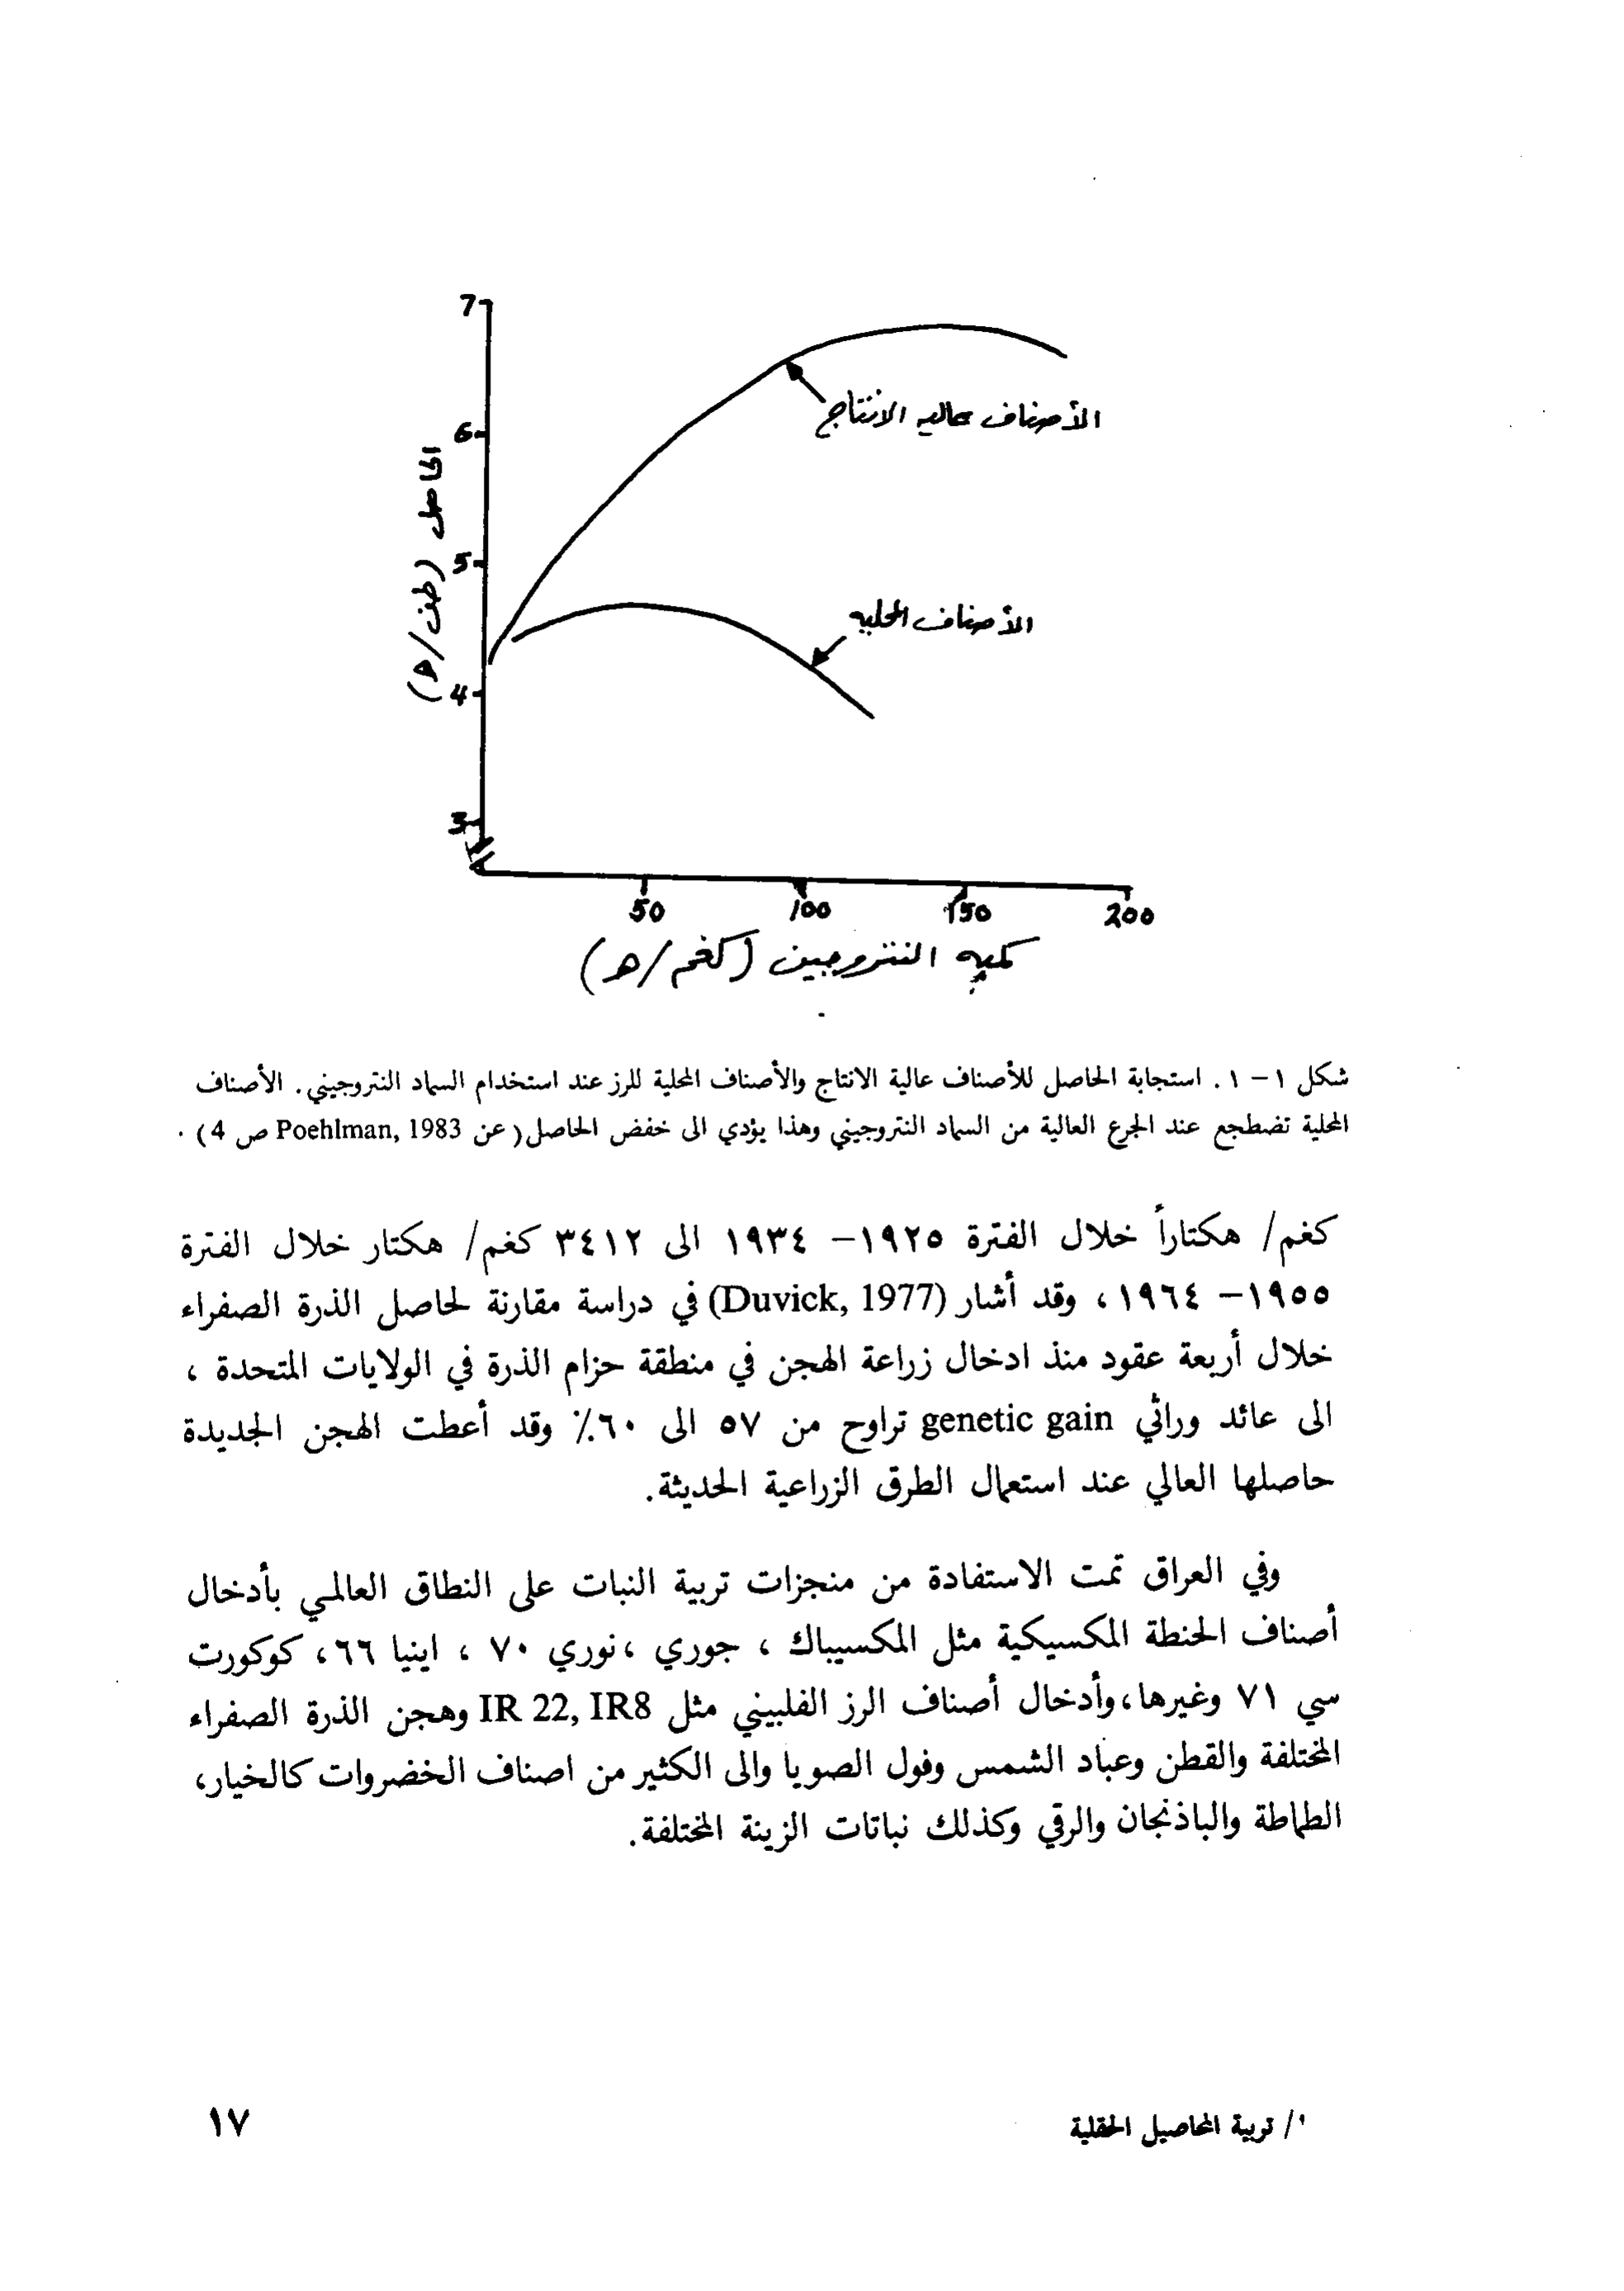 7
6
5
4
3
الحاصل (طن/ه)
الأصناف عاليه الانتاج
الأصناف المحليه
50 100 150 200
كميه النتروجين (كغم/ه)
شكل ١ – ١ . استجابة الحاصل للأصناف عالية الانتاج والأصناف المحلية للرز عند استخدام السماد النتروجيني . الأصناف
المحلية تضطجع عند الجرع العالية من السماد النتروجيني وهذا يؤدي الى خفض الحاصل (عن Poehlman, 1983 ص 4) .
كغم/ هكتاراً خلال الفترة ١٩٢٥– ١٩٣٤ الى ٣٤١٢ كغم/ هكتار خلال الفترة
١٩٥٥– ١٩٦٤ ، وقد أشار (Duvick, 1977) في دراسة مقارنة لحاصل الذرة الصفراء
خلال أربعة عقود منذ ادخال زراعة الهجن في منطقة حزام الذرة في الولايات المتحدة ،
الى عائد وراثي genetic gain تراوح من ٥٧ الى ٦٠٪ وقد أعطت الهجن الجديدة
حاصلها العالي عند استعمال الطرق الزراعية الحديثة.
وفي العراق تمت الاستفادة من منجزات تربية النبات على النطاق العالمي بأدخال
أصناف الحنطة المكسيكية مثل المكسيباك ، جوري ،نوري ٧٠ ، اينيا ٦٦، كوكورت
سي ٧١ وغيرها،وأدخال أصناف الرز الفلبيني مثل IR 22, IR8 وهجن الذرة الصفراء
المختلفة والقطن وعباد الشمس وفول الصويا والى الكثير من اصناف الخضروات كالخيار،
الطماطة والباذنجان والرقي وكذلك نباتات الزينة المختلفة.
/ تربية المحاصيل الحقلية
١٧